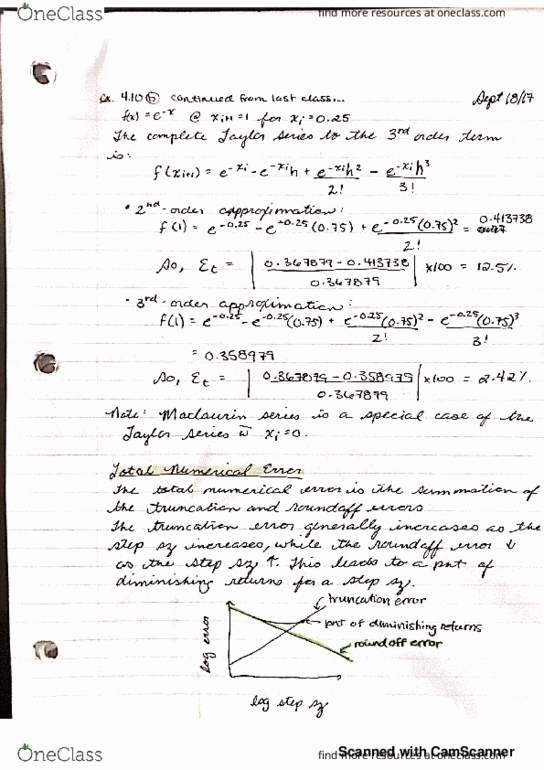 OneClass
find more resources at oneclass.com
Sept 18/17
Ex. 4.10 ⓑ continued from last class...
f(x) = e^-x @ x_i+1 = 1 for x_i = 0.25
The complete Taylor series to the 3rd order term
is:
f(x_i+1) = e^-x_i - e^-x_i h + e^-x_i h^2/2! - e^-x_i h^3/3!
• 2nd-order approximation:
f(1) = e^-0.25 - e^-0.25 (0.75) + e^-0.25 (0.75)^2/2! = 0.413738
So, Ɛt = | 0.367879 - 0.413738 / 0.367879 | x100 = 12.5%
• 3rd-order approximation:
f(1) = e^-0.25 - e^-0.25 (0.75) + e^-0.25 (0.75)^2/2! - e^-0.25 (0.75)^3/3!
= 0.358979
So, Ɛt = | 0.367879 - 0.358979 / 0.367879 | x100 = 2.42%
Note: Maclaurin series is a special case of the
Taylor series w̄ x_i = 0.
Total Numerical Error
The total numerical error is the summation of
the truncation and roundoff errors
The truncation error generally increases as the
step sz increases, while the roundoff error ↓
as the step sz ↑. This leads to a pnt of
diminishing returns for a step sz.
truncation error
pnt of diminishing returns
roundoff error
log error
log step sz
Scanned with CamScanner
OneClass
find more resources at oneclass.com